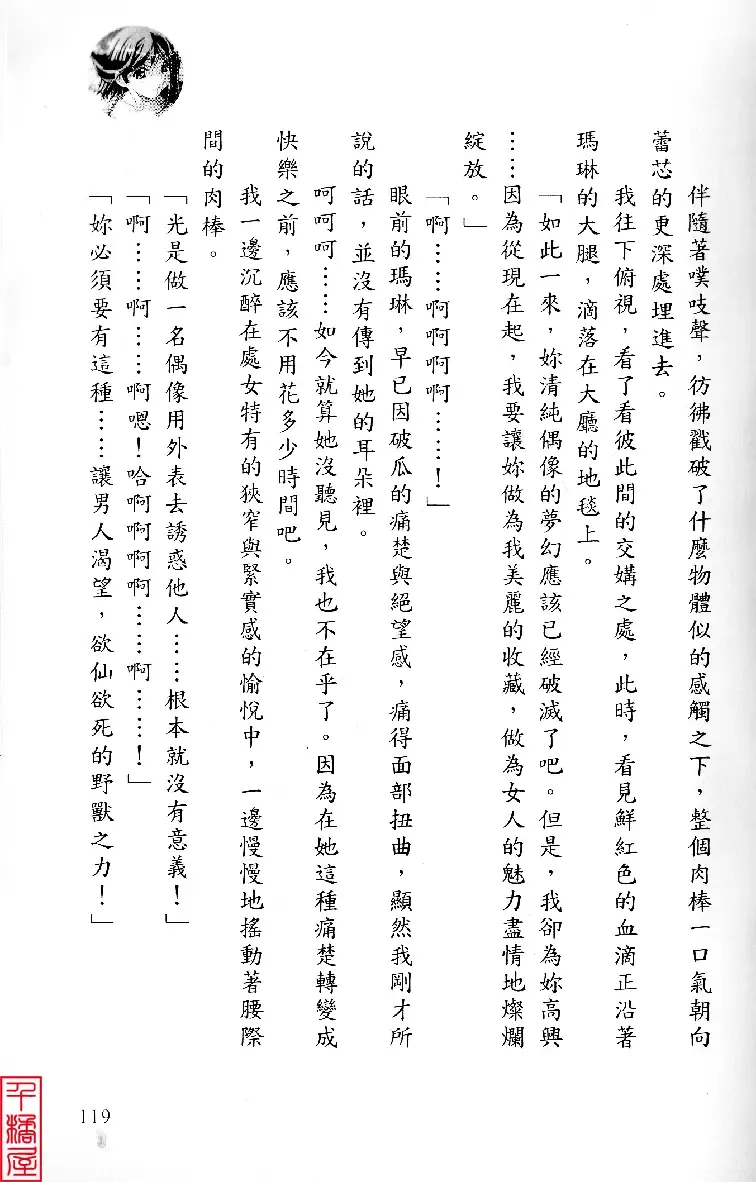 伴隨著噗吱聲，彷彿戳破了什麼物體似的感觸之下，整個肉棒一口氣朝向
蕾芯的更深處埋進去。
我往下俯視，看了看彼此間的交媾之處，此時，看見鮮紅色的血滴正沿著
瑪琳的大腿，滴落在大廳的地毯上。
「如此一來，妳清純偶像的夢幻應該已經破滅了吧。但是，我卻為妳高興
……因為從現在起，我要讓妳做為我美麗的收藏，做為女人的魅力盡情地燦爛
綻放。」
「啊……啊啊啊……！」
眼前的瑪琳，早已因破瓜的痛楚與絕望感，痛得面部扭曲，顯然我剛才所
說的話，並沒有傳到她的耳朵裡。
呵呵呵……如今就算她沒聽見，我也不在乎了。因為在她這種痛楚轉變成
快樂之前，應該不用花多少時間吧。
我一邊沉醉在處女特有的狹窄與緊實感的愉悅中，一邊慢慢地搖動著腰際
間的肉棒。
「光是做一名偶像用外表去誘惑他人……根本就沒有意義！」
「啊……啊……啊嗯！哈啊啊啊……啊……！」
「妳必須要有這種……讓男人渴望，欲仙欲死的野獸之力！」
119
千橘屋